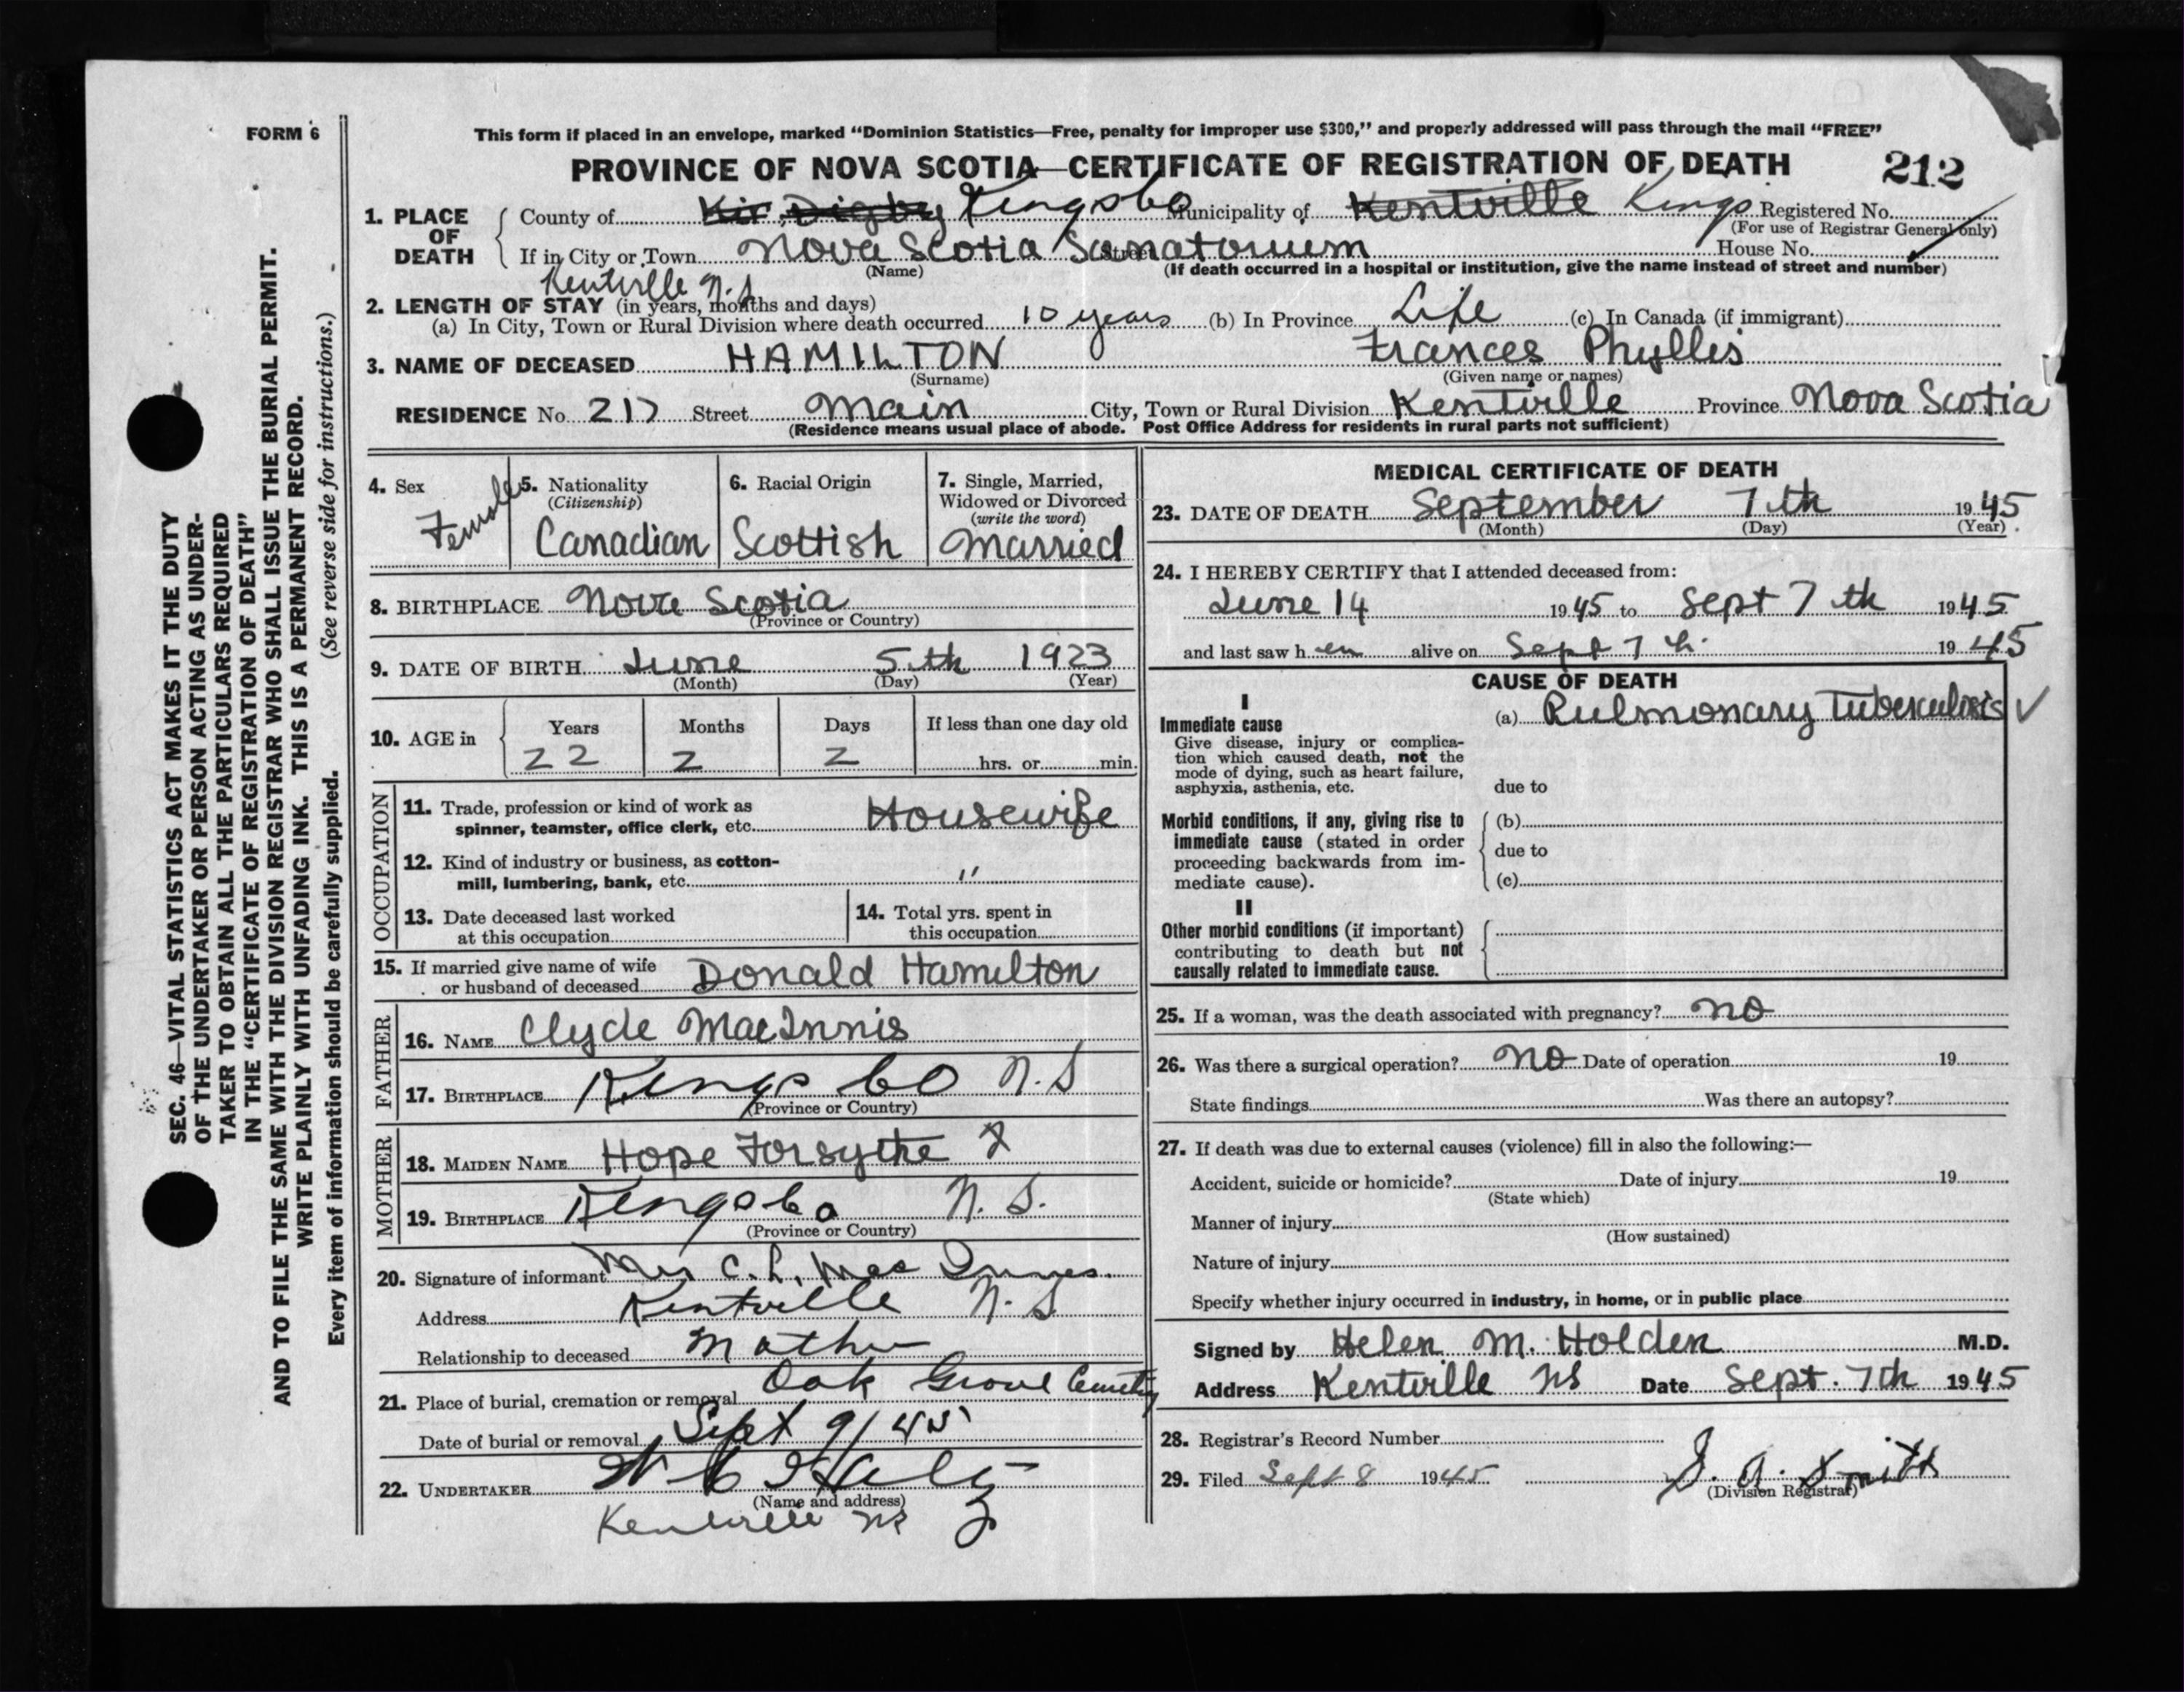 FORM 6
This form if placed in an envelope, marked “Dominion Statistics—Free, penalty for improper use $300,” and properly addressed will pass through the mail “FREE”
PROVINCE OF NOVA SCOTIA—CERTIFICATE OF REGISTRATION OF DEATH 212
1. PLACE OF DEATH County of Kir Digby Kings Co Municipality of Kentville Kings Registered No.
(For use of Registrar General only)
If in City or Town Nova Scotia Sanatorium Street House No.
(Name) (If death occurred in a hospital or institution, give the name instead of street and number)
Kentville N.S
2. LENGTH OF STAY (in years, months and days)
(a) In City, Town or Rural Division where death occurred 10 years (b) In Province Life (c) In Canada (if immigrant)
3. NAME OF DECEASED HAMILTON Frances Phyllis
(Surname) (Given name or names)
RESIDENCE No. 217 Street Main City, Town or Rural Division Kentville Province Nova Scotia
(Residence means usual place of abode. Post Office Address for residents in rural parts not sufficient)
4. Sex Female
5. Nationality
(Citizenship)
Canadian
6. Racial Origin
Scottish
7. Single, Married,
Widowed or Divorced
(write the word)
Married
8. BIRTHPLACE Nova Scotia
(Province or Country)
9. DATE OF BIRTH June 5th 1923
(Month) (Day) (Year)
10. AGE in Years Months Days If less than one day old
22 2 2 hrs. or min.
OCCUPATION
11. Trade, profession or kind of work as
spinner, teamster, office clerk, etc. Housewife
12. Kind of industry or business, as cotton-
mill, lumbering, bank, etc. "
13. Date deceased last worked
at this occupation
14. Total yrs. spent in
this occupation
15. If married give name of wife
or husband of deceased Donald Hamilton
FATHER
16. NAME Clyde MacInnis
17. BIRTHPLACE Kings Co N.S
(Province or Country)
MOTHER
18. MAIDEN NAME Hope Forsythe
19. BIRTHPLACE Kings Co N.S.
(Province or Country)
20. Signature of informant Mrs C.L. Mac Innes.
Address Kentville N.S
Relationship to deceased Mother
21. Place of burial, cremation or removal Oak Grove Cemetry
Date of burial or removal Sept 9/45
22. UNDERTAKER
(Name and address)
Kentville NS
MEDICAL CERTIFICATE OF DEATH
23. DATE OF DEATH September 7th 1945
(Month) (Day) (Year)
24. I HEREBY CERTIFY that I attended deceased from:
June 14 1945 to Sept 7th 1945
and last saw h er alive on Sept 7th. 1945
CAUSE OF DEATH
I
Immediate cause (a) Pulmonary Tuberculosis ✓
Give disease, injury or complica-
tion which caused death, not the
mode of dying, such as heart failure,
asphyxia, asthenia, etc. due to
Morbid conditions, if any, giving rise to (b)
immediate cause (stated in order due to
proceeding backwards from im-
mediate cause). (c)
II
Other morbid conditions (if important)
contributing to death but not
causally related to immediate cause.
25. If a woman, was the death associated with pregnancy? no
26. Was there a surgical operation? no Date of operation 19
State findings Was there an autopsy?
27. If death was due to external causes (violence) fill in also the following:—
Accident, suicide or homicide? Date of injury 19
(State which)
Manner of injury
(How sustained)
Nature of injury
Specify whether injury occurred in industry, in home, or in public place
Signed by Helen M. Holden M.D.
Address Kentville NS Date Sept. 7th 1945
28. Registrar's Record Number
29. Filed Sept 8 1945 Smith
(Division Registrar)
SEC. 46—VITAL STATISTICS ACT MAKES IT THE DUTY
OF THE UNDERTAKER OR PERSON ACTING AS UNDER-
TAKER TO OBTAIN ALL THE PARTICULARS REQUIRED
IN THE “CERTIFICATE OF REGISTRATION OF DEATH”
AND TO FILE THE SAME WITH THE DIVISION REGISTRAR WHO SHALL ISSUE THE BURIAL PERMIT.
WRITE PLAINLY WITH UNFADING INK. THIS IS A PERMANENT RECORD.
Every item of information should be carefully supplied. (See reverse side for instructions.)